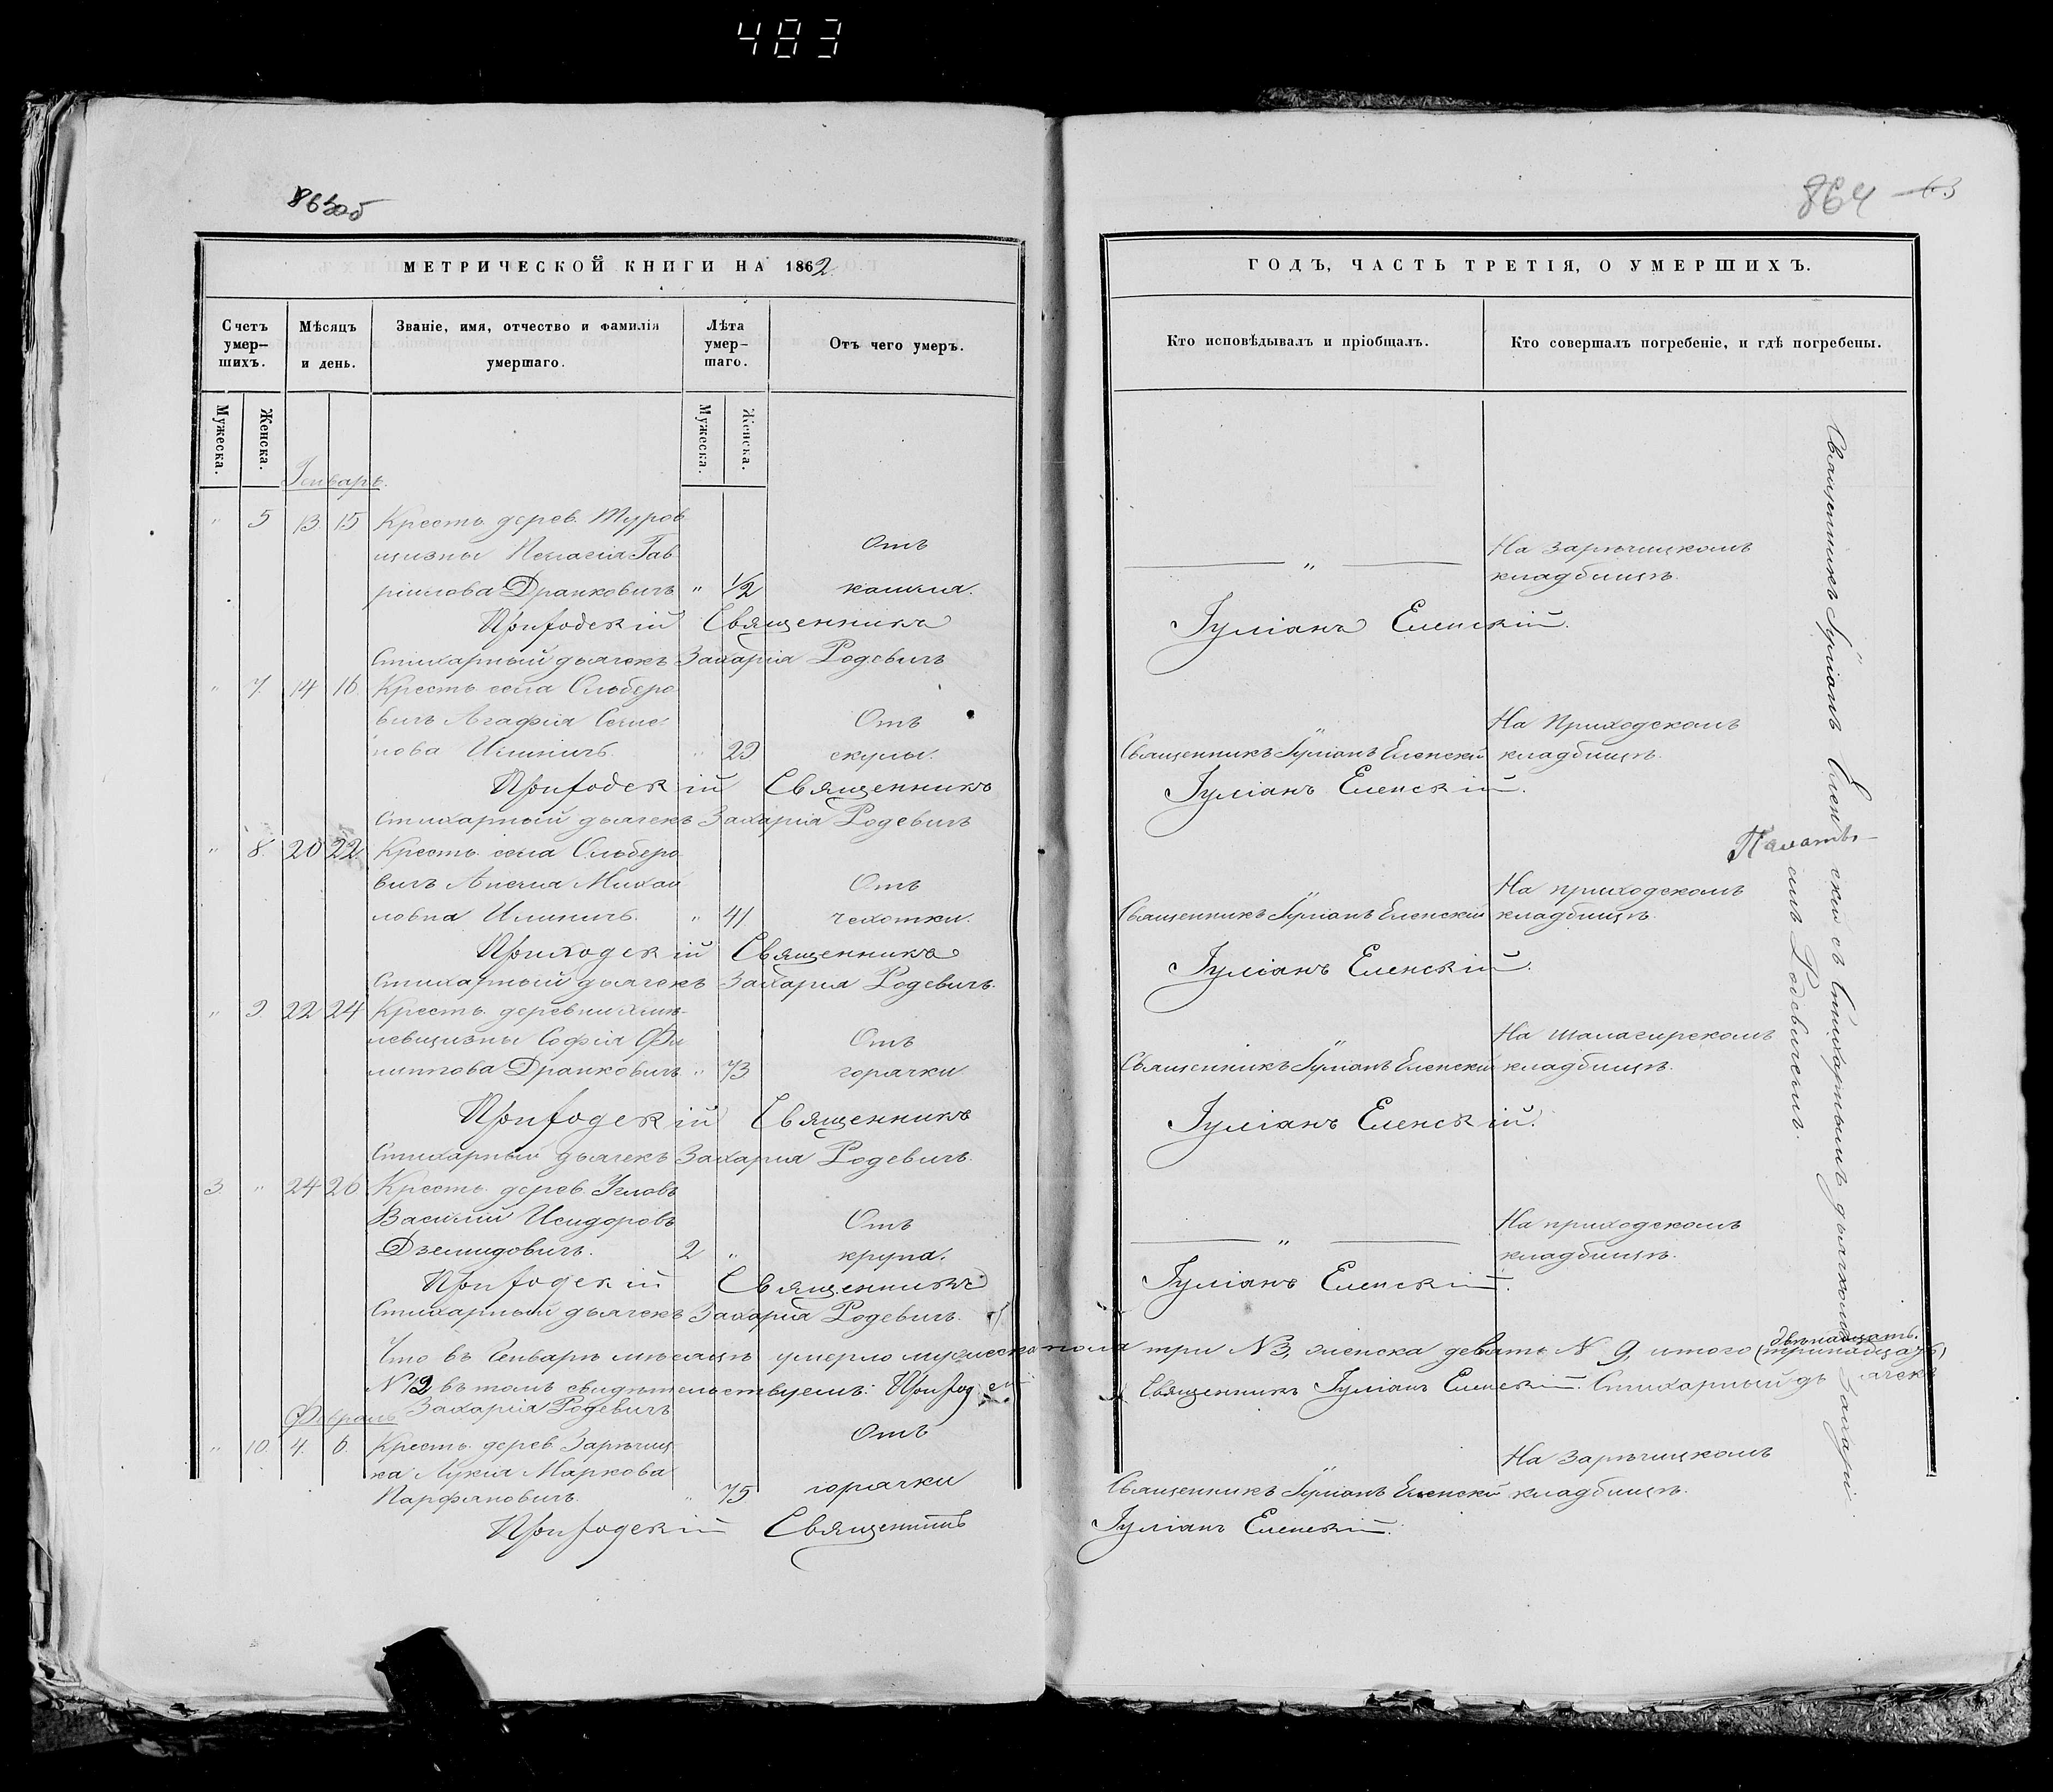 483
863об
864 63
МЕТРИЧЕСКОЙ КНИГИ НА 1862
ГОДЪ, ЧАСТЬ ТРЕТІЯ, О УМЕРШИХЪ.
Счетъ умер-шихъ.
Мѣсяцъ и день.
Званіе, имя, отчество и фамилія умершаго.
Лѣта умер-шаго.
Отъ чего умеръ.
Кто исповѣдывалъ и пріобщалъ.
Кто совершалъ погребеніе, и гдѣ погребены.
Мужеска.
Женска.
Мужеска.
Женска.
Генварь.
" 5 13 15 Кресть. дерев. Туров
щизны Пелагія Гав Отъ На Зарѣчицкомъ
ріилова Дранковичъ " 1/2 кашля. " кладбищѣ.
Приходскій Священникъ Іуліанъ Еленскій.
Стихарный дьячекъ Захарія Родевичъ
" 7. 14 16. Кресть. села Ольберо
вичъ Агафія Семе- Отъ На Приходскомъ
нова Илиничъ. " 29 скулы. Священникъ Іуліанъ Еленскій кладбищѣ.
Приходскій Священникъ Іуліанъ Еленскій.
Стихарный дьячекъ Захарія Родевичъ
" 8. 20 22. Кресть. села Ольберо
вичъ Анелія Михай Отъ На приходскомъ
ловна Илиничъ. " 41 чехотки. Священникъ Іуліанъ Еленскій кладбищѣ.
Приходскій Священникъ Іуліанъ Еленскій.
Стихарный дьячекъ Захарія Родевичъ.
" 9. 22 24 Кресть. деревни
левщизны Софія Фи Отъ На
липпова Дранковичъ " 73 горячки Священникъ Іуліанъ Еленскій кладбищѣ.
Приходскій Священникъ Іуліанъ Еленскій.
Стихарный дьячекъ Захарія Родевичъ.
3. " 24 26 Кресть. дерев.
Василій Исидоровъ Отъ На приходскомъ
Дземидовичъ. 2 " крупа. " кладбищѣ.
Приходскій Священникъ Іуліанъ Еленскій.
Стихарный дьячекъ Захарія Родевичъ.
двѣнадцать.
Что въ Генварѣ мѣсяцѣ умерло мужеска пола три N 3, женска девять N 9, итого (тринадцать)
N 12 въ томъ свидѣтельствуемъ: Приход Священникъ Іуліанъ Еленскій. Стихарный дьячекъ
Захарія Родевичъ
Февраль
" 10. 4. 6. Кресть. дерев. Зарѣчиц Отъ На Зарѣчицкомъ
ка Лукія Маркова
Парфяновичъ. " 75 горячки Священникъ Іуліанъ Еленскій кладбищѣ.
Приходскій Священникъ Іуліанъ Еленскій.
Священникъ Іуліанъ Еленскій съ Стихарнымъ дьячкомъ Захаріемъ Родевичемъ.